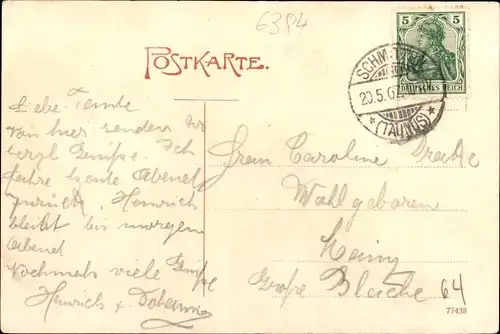 6384
POSTKARTE.
5 5
DEUTSCHES REICH
SCHM
20.5.0
* (TAUNUS) *
Liebe Tante
von hier senden wir
herzl Grüße. Ich
fahre heute Abend
zurück, Heinrich
bleibt bis morgen
Abend
Nochmals viele Grüße
Heinrich u.
Frau Caroline
Wohlgeboren
Mainz
Große Bleiche 64
77438